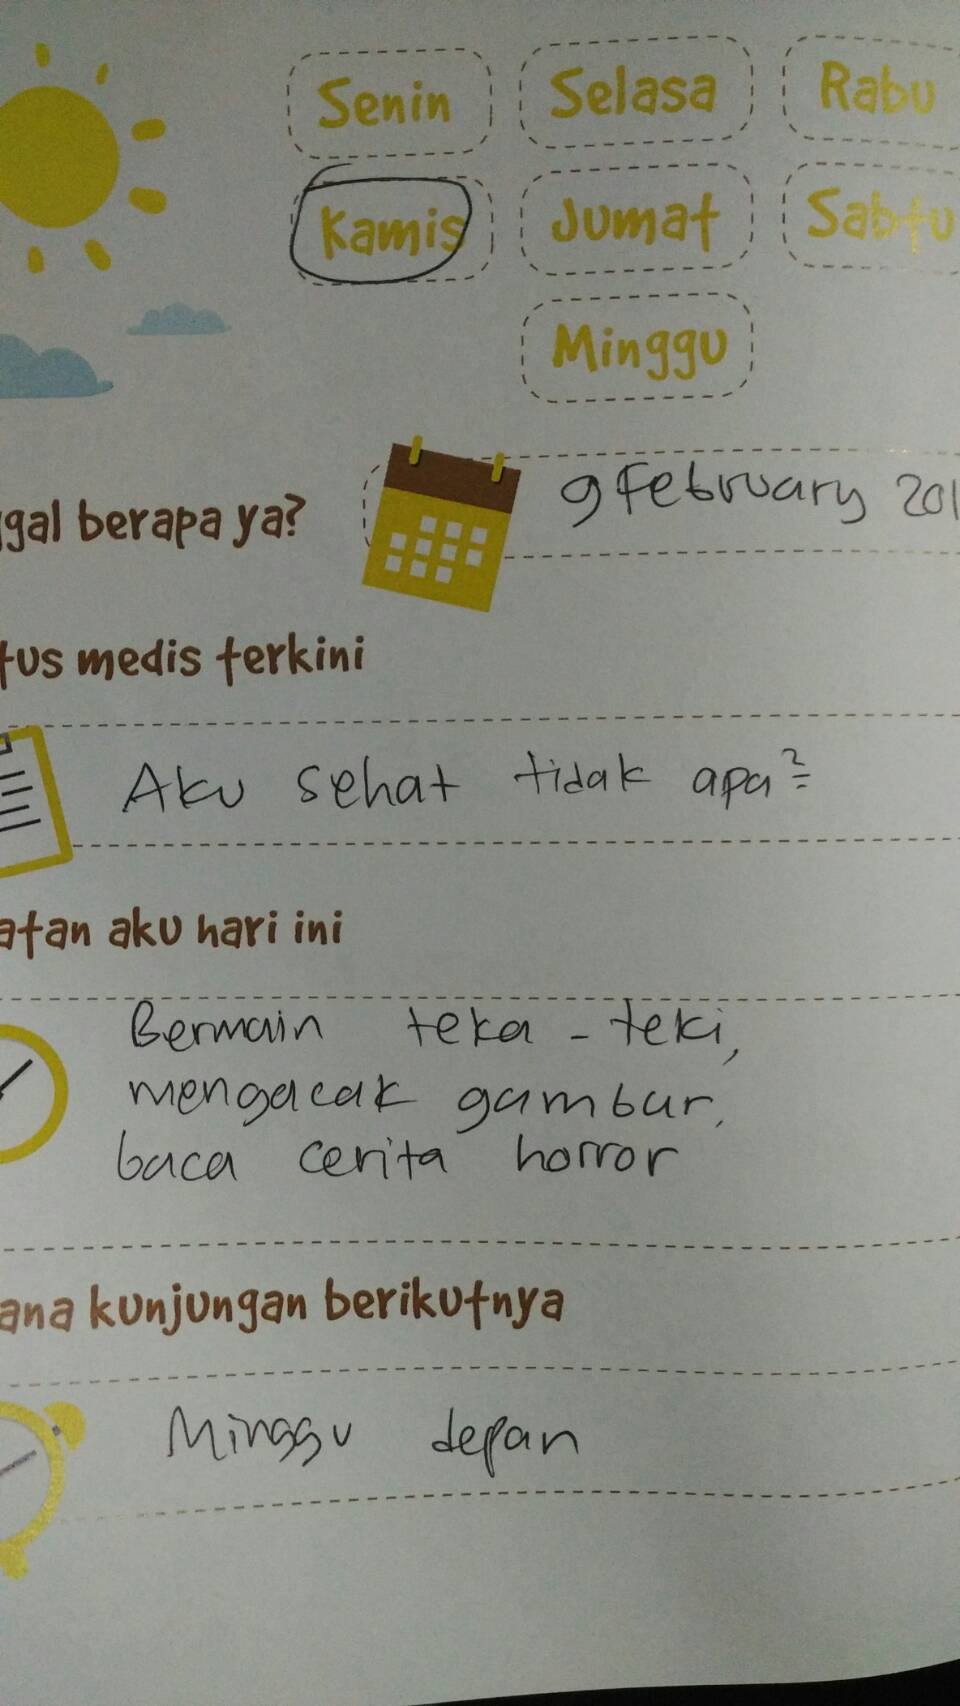 Senin Selasa Rabu
Kamis Jumat Sabtu
Minggu
ggal berapa ya? 9 February 201
tus medis terkini
Aku sehat tidak apa²
atan aku hari ini
Bermain teka - teki,
mengacak gambar,
baca cerita horror
ana kunjungan berikutnya
Minggu depan